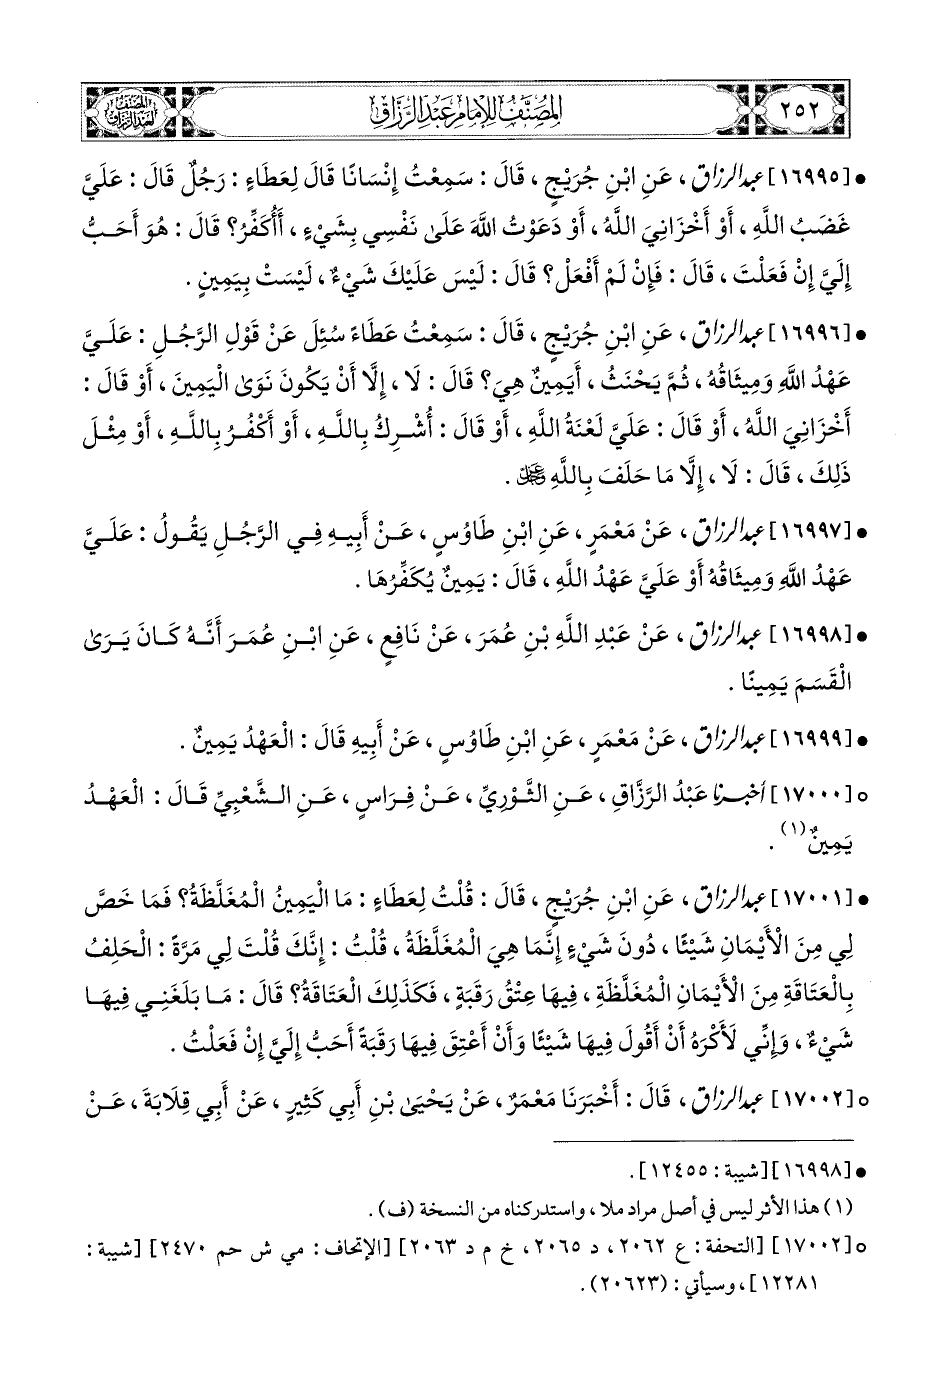 ٢٥٢
المُصَنَّفُ لِلإِمَامِ عَبْدِ الرَّزَّاقِ
المصنف
لعبد الرزاق
• [١٦٩٩٥] عبد الرزاق ، عَنِ ابْنِ جُرَيْجٍ ، قَالَ : سَمِعْتُ إِنْسَانًا قَالَ لِعَطَاءٍ : رَجُلٌ قَالَ : عَلَيَّ
غَضَبُ اللَّهِ ، أَوْ أَخْزَانِيَ اللَّهُ ، أَوْ دَعَوْتُ اللَّهَ عَلَىٰ نَفْسِي بِشَيْءٍ ، أَأُكَفِّرُ؟ قَالَ : هُوَ أَحَبُّ
إِلَيَّ إِنْ فَعَلْتَ ، قَالَ : فَإِنْ لَمْ أَفْعَلْ؟ قَالَ : لَيْسَ عَلَيْكَ شَيْءٌ ، لَيْسَتْ بِيَمِينٍ .
• [١٦٩٩٦] عبد الرزاق ، عَنِ ابْنِ جُرَيْجٍ ، قَالَ : سَمِعْتُ عَطَاءً سُئِلَ عَنْ قَوْلِ الرَّجُلِ : عَلَيَّ
عَهْدُ اللَّهِ وَمِيثَاقُهُ ، ثُمَّ يَحْنَثُ ، أَيَمِينٌ هِيَ؟ قَالَ : لَا ، إِلَّا أَنْ يَكُونَ نَوَىٰ الْيَمِينَ ، أَوْ قَالَ :
أَخْزَانِيَ اللَّهُ ، أَوْ قَالَ : عَلَيَّ لَعْنَةُ اللَّهِ ، أَوْ قَالَ : أُشْرِكُ بِاللَّهِ ، أَوْ أَكْفُرُ بِاللَّهِ ، أَوْ مِثْلَ
ذَلِكَ ، قَالَ : لَا ، إِلَّا مَا حَلَفَ بِاللَّهِ ﷿ .
• [١٦٩٩٧] عبد الرزاق ، عَنْ مَعْمَرٍ ، عَنِ ابْنِ طَاوُسٍ ، عَنْ أَبِيهِ فِي الرَّجُلِ يَقُولُ : عَلَيَّ
عَهْدُ اللَّهِ وَمِيثَاقُهُ أَوْ عَلَيَّ عَهْدُ اللَّهِ ، قَالَ : يَمِينٌ يُكَفِّرُهَا .
• [١٦٩٩٨] عبد الرزاق ، عَنْ عَبْدِ اللَّهِ بْنِ عُمَرَ ، عَنْ نَافِعٍ ، عَنِ ابْنِ عُمَرَ أَنَّهُ كَانَ يَرَىٰ
الْقَسَمَ يَمِينًا .
• [١٦٩٩٩] عبد الرزاق ، عَنْ مَعْمَرٍ ، عَنِ ابْنِ طَاوُسٍ ، عَنْ أَبِيهِ قَالَ : الْعَهْدُ يَمِينٌ .
○ [١٧٠٠٠] أخبرنا عَبْدُ الرَّزَّاقِ ، عَنِ الثَّوْرِيِّ ، عَنْ فِرَاسٍ ، عَنِ الشَّعْبِيِّ قَالَ : الْعَهْدُ
يَمِينٌ (١) .
• [١٧٠٠١] عبد الرزاق ، عَنِ ابْنِ جُرَيْجٍ ، قَالَ : قُلْتُ لِعَطَاءٍ : مَا الْيَمِينُ الْمُغَلَّظَةُ؟ فَمَا خَصَّ
لِي مِنَ الْأَيْمَانِ شَيْئًا ، دُونَ شَيْءٍ إِنَّمَا هِيَ الْمُغَلَّظَةُ ، قُلْتُ : إِنَّكَ قُلْتَ لِي مَرَّةً : الْحَلِفُ
بِالْعَتَاقَةِ مِنَ الْأَيْمَانِ الْمُغَلَّظَةِ ، فِيهَا عِتْقُ رَقَبَةٍ ، فَكَذَلِكَ الْعَتَاقَةُ؟ قَالَ : مَا بَلَغَنِي فِيهَا
شَيْءٌ ، وَإِنِّي لَأَكْرَهُ أَنْ أَقُولَ فِيهَا شَيْئًا وَأَنْ أَعْتِقَ فِيهَا رَقَبَةً أَحَبُّ إِلَيَّ إِنْ فَعَلْتُ .
○ [١٧٠٠٢] عبد الرزاق ، قَالَ : أَخْبَرَنَا مَعْمَرٌ ، عَنْ يَحْيَىٰ بْنِ أَبِي كَثِيرٍ ، عَنْ أَبِي قِلَابَةَ ، عَنْ
• [١٦٩٩٨] [شيبة : ١٢٤٥٥] .
(١) هذا الأثر ليس في أصل مراد ملا ، واستدركناه من النسخة (ف) .
○ [١٧٠٠٢] [التحفة : ع ٢٠٦٢ ، د ٢٠٦٥ ، خ م د ٢٠٦٣] [الإتحاف : مي ش حم ٢٤٧٠] [شيبة :
١٢٢٨١] ، وسيأتي : (٢٠٦٢٣) .